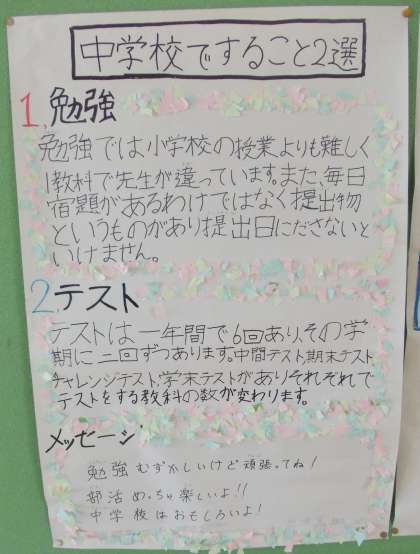 中学校ですること2選
1.勉強
勉強では小学校の授業よりも難しく
1教科で先生が違っています。また、毎日
宿題があるわけではなく提出物
というものがあり提出日にださないと
いけません。
2.テスト
テストは一年間で6回あり、その学
期に二回ずつあります。中間テスト期末テスト
チャレンジテスト、学末テストがありそれぞれで
テストをする教科の数が変わります。
メッセージ
勉強むずかしいけど頑張ってね!
部活めっちゃ楽しいよ!!
中学校はおもしろいよ!